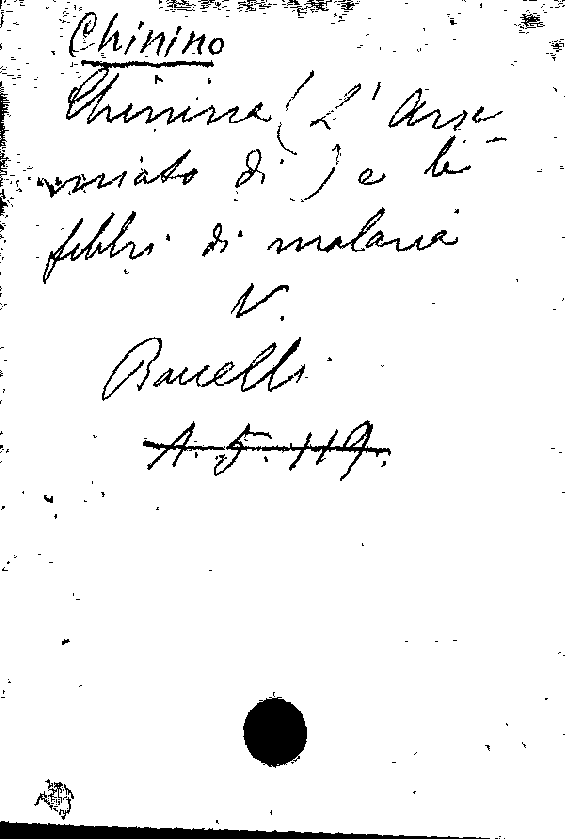 Chinino
Chinina (L' Arse
niato di) e le
febbri di malaria
V.
Baccelli
A. 5. 119.